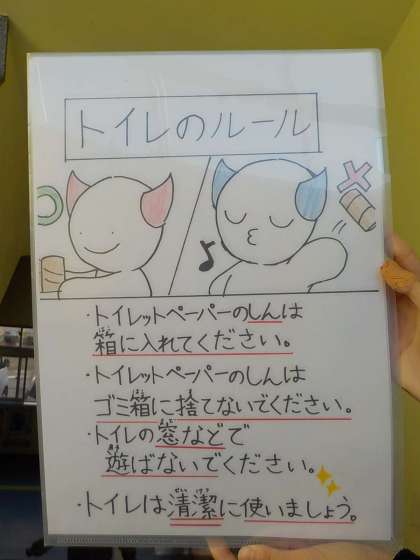 トイレのルール
・トイレットペーパーのしんは
箱に入れてください。
・トイレットペーパーのしんは
ゴミ箱に捨てないでください。
・トイレの窓などで
遊ばないでください。
・トイレは清潔に使いましょう。